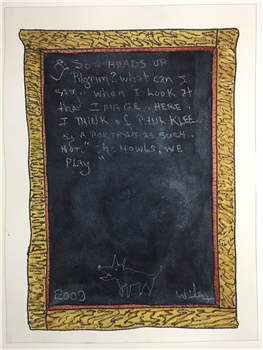 So HEADS UP
Pilgrim? What can I
Say.. When I Look at
the IMAGE.. HERE,
I THINK of PAUL KLEE..
A PORTRAIT as SUCH,
HOWLS, WE
PLAY."
2009 Wiley